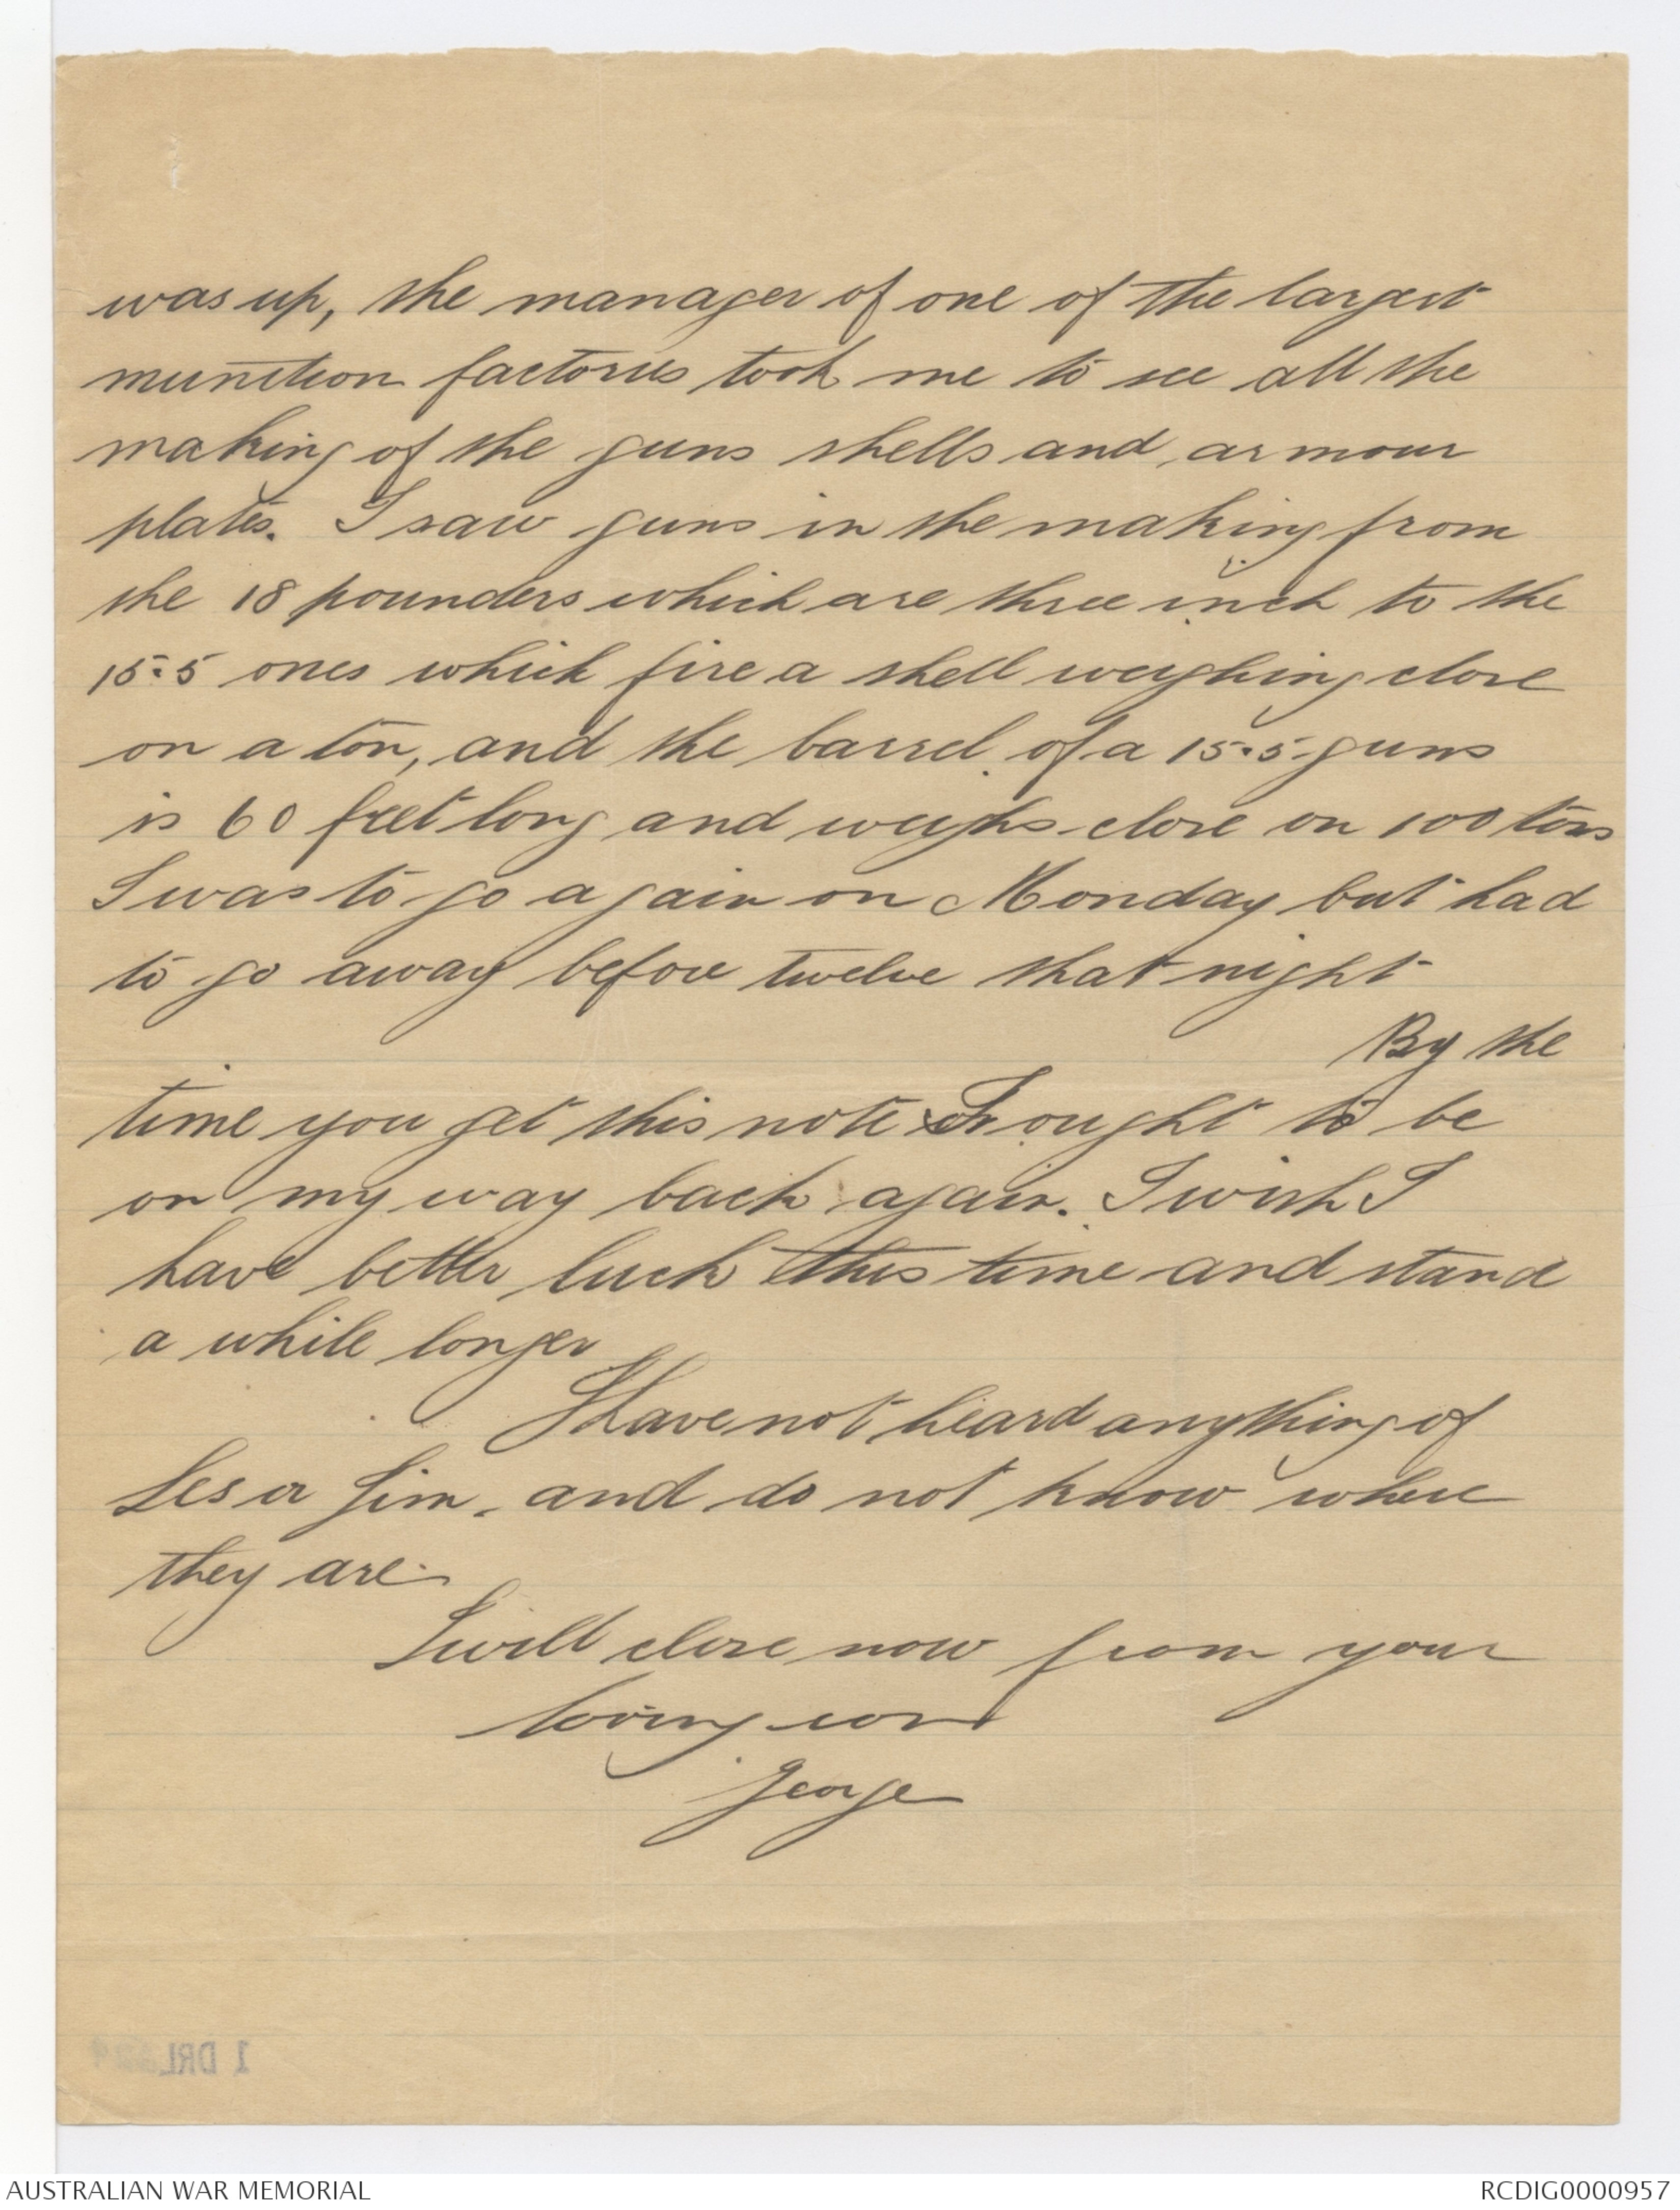 was up, the manager of one of the largest
munition factories took me to see all the
making of the guns shells and armour
plates. I saw guns in the making from
the 18 pounders which are three inch to the
15.5 ones which fire a shell weighing close
on a ton, and the barrel of a 15.5 guns
is 60 feet long and weighs close on 100 tons
I was to go again on Monday but had
to go away before twelve that night
By the
time you get this note I ought to be
on my way back again. I wish I
have better luck this time and stand
a while longer
I have not heard anything of
Les or Jim, and do not know where
they are.
I will close now from your
loving son
George
1 DRL
AUSTRALIAN WAR MEMORIAL
RCDIG0000957